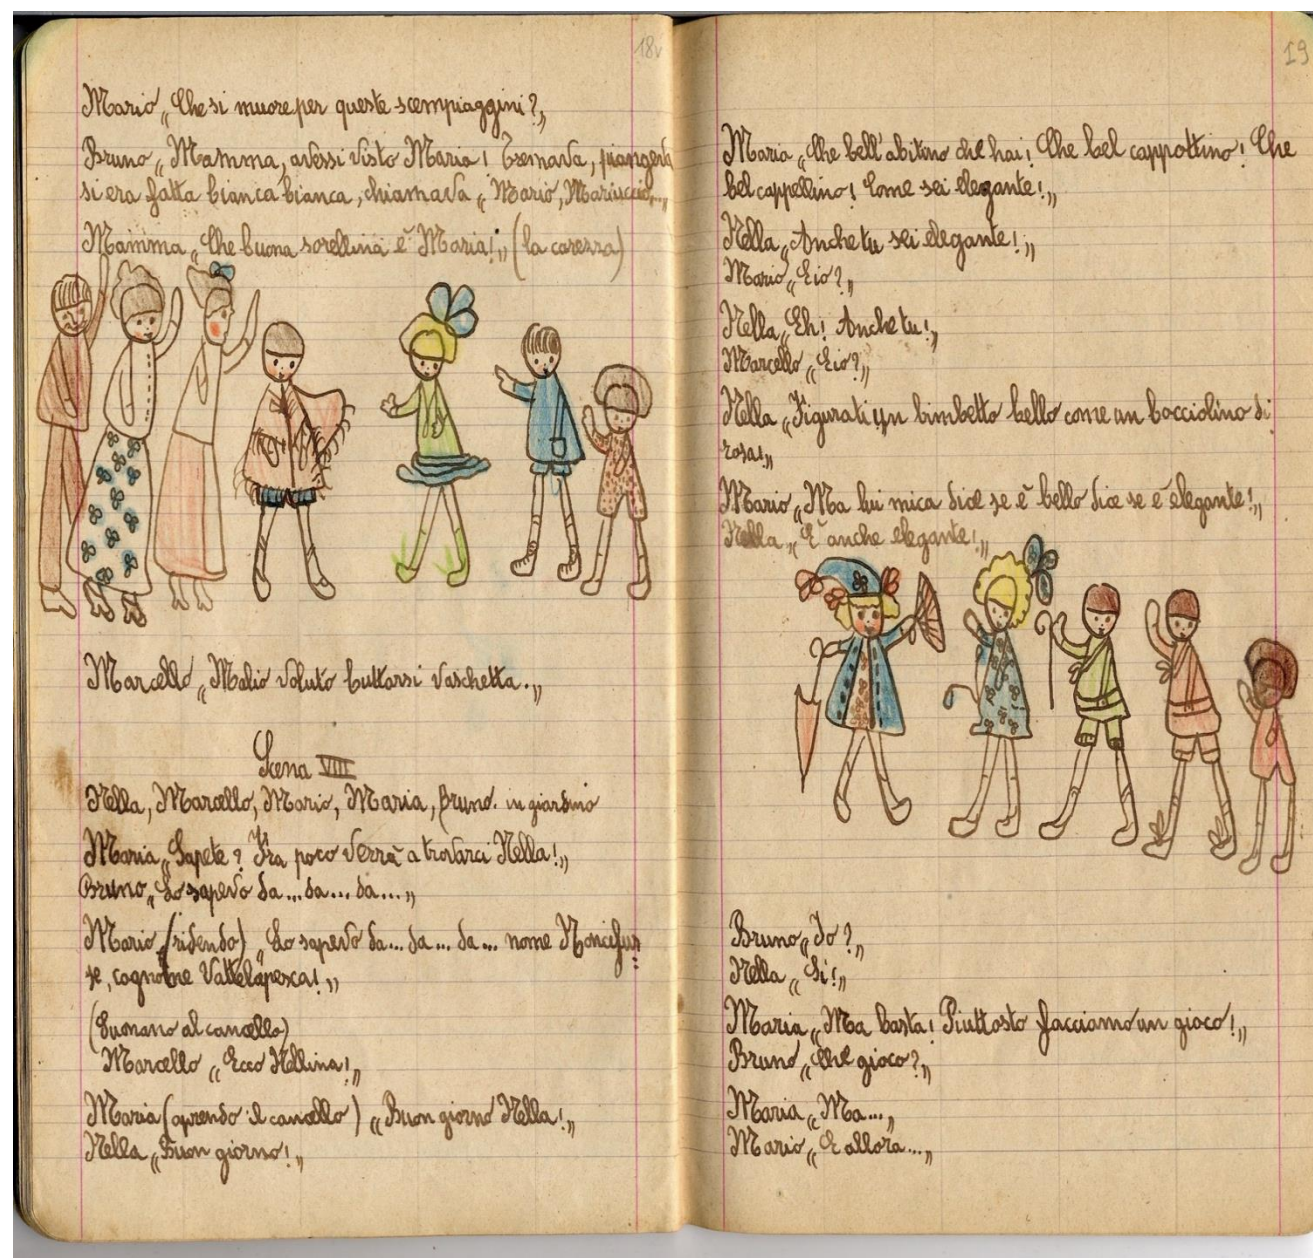 18v
Mario „Che si muore per queste scempiaggini?„
Bruno „Mamma, avessi visto Maria! Tremava, piangeva
si era fatta bianca bianca, chiamava „Mario, Mariuccio...„
Mamma „Che buona sorellina è Maria!„ (la carezza)
Marcello „Malio voluto buttarsi vaschetta.„
Scena VIII
Nella, Marcello, Mario, Maria, Bruno. in giardino
Maria „Sapete? Fra poco verrà a trovarci Nella!„
Bruno „Lo sapevo da... da... da...„
Mario (ridendo) „Lo sapevo da... da... da... nome
se, cognome Vattelapesca!„
(Suonano al cancello)
Marcello „Ecco Nellina!„
Maria (aprendo il cancello) „Buon giorno Nella!„
Nella „Buon giorno!„
19
Maria „Che bell'abitino che hai! Che bel cappottino! Che
bel cappellino! Come sei elegante!„
Nella „Anche tu sei elegante!„
Mario „E io?„
Nella „Eh! Anche tu!„
Marcello „E io?„
Nella „Figurati un bimbetto bello come un bocciolino di
rosa!„
Mario „Ma lui mica dice se è bello dice se è elegante!„
Nella „È anche elegante!„
Bruno „Io?„
Nella „Si!„
Maria „Ma basta! Piuttosto facciamo un gioco!„
Bruno „Che gioco?„
Maria „Ma...„
Mario „E allora...„